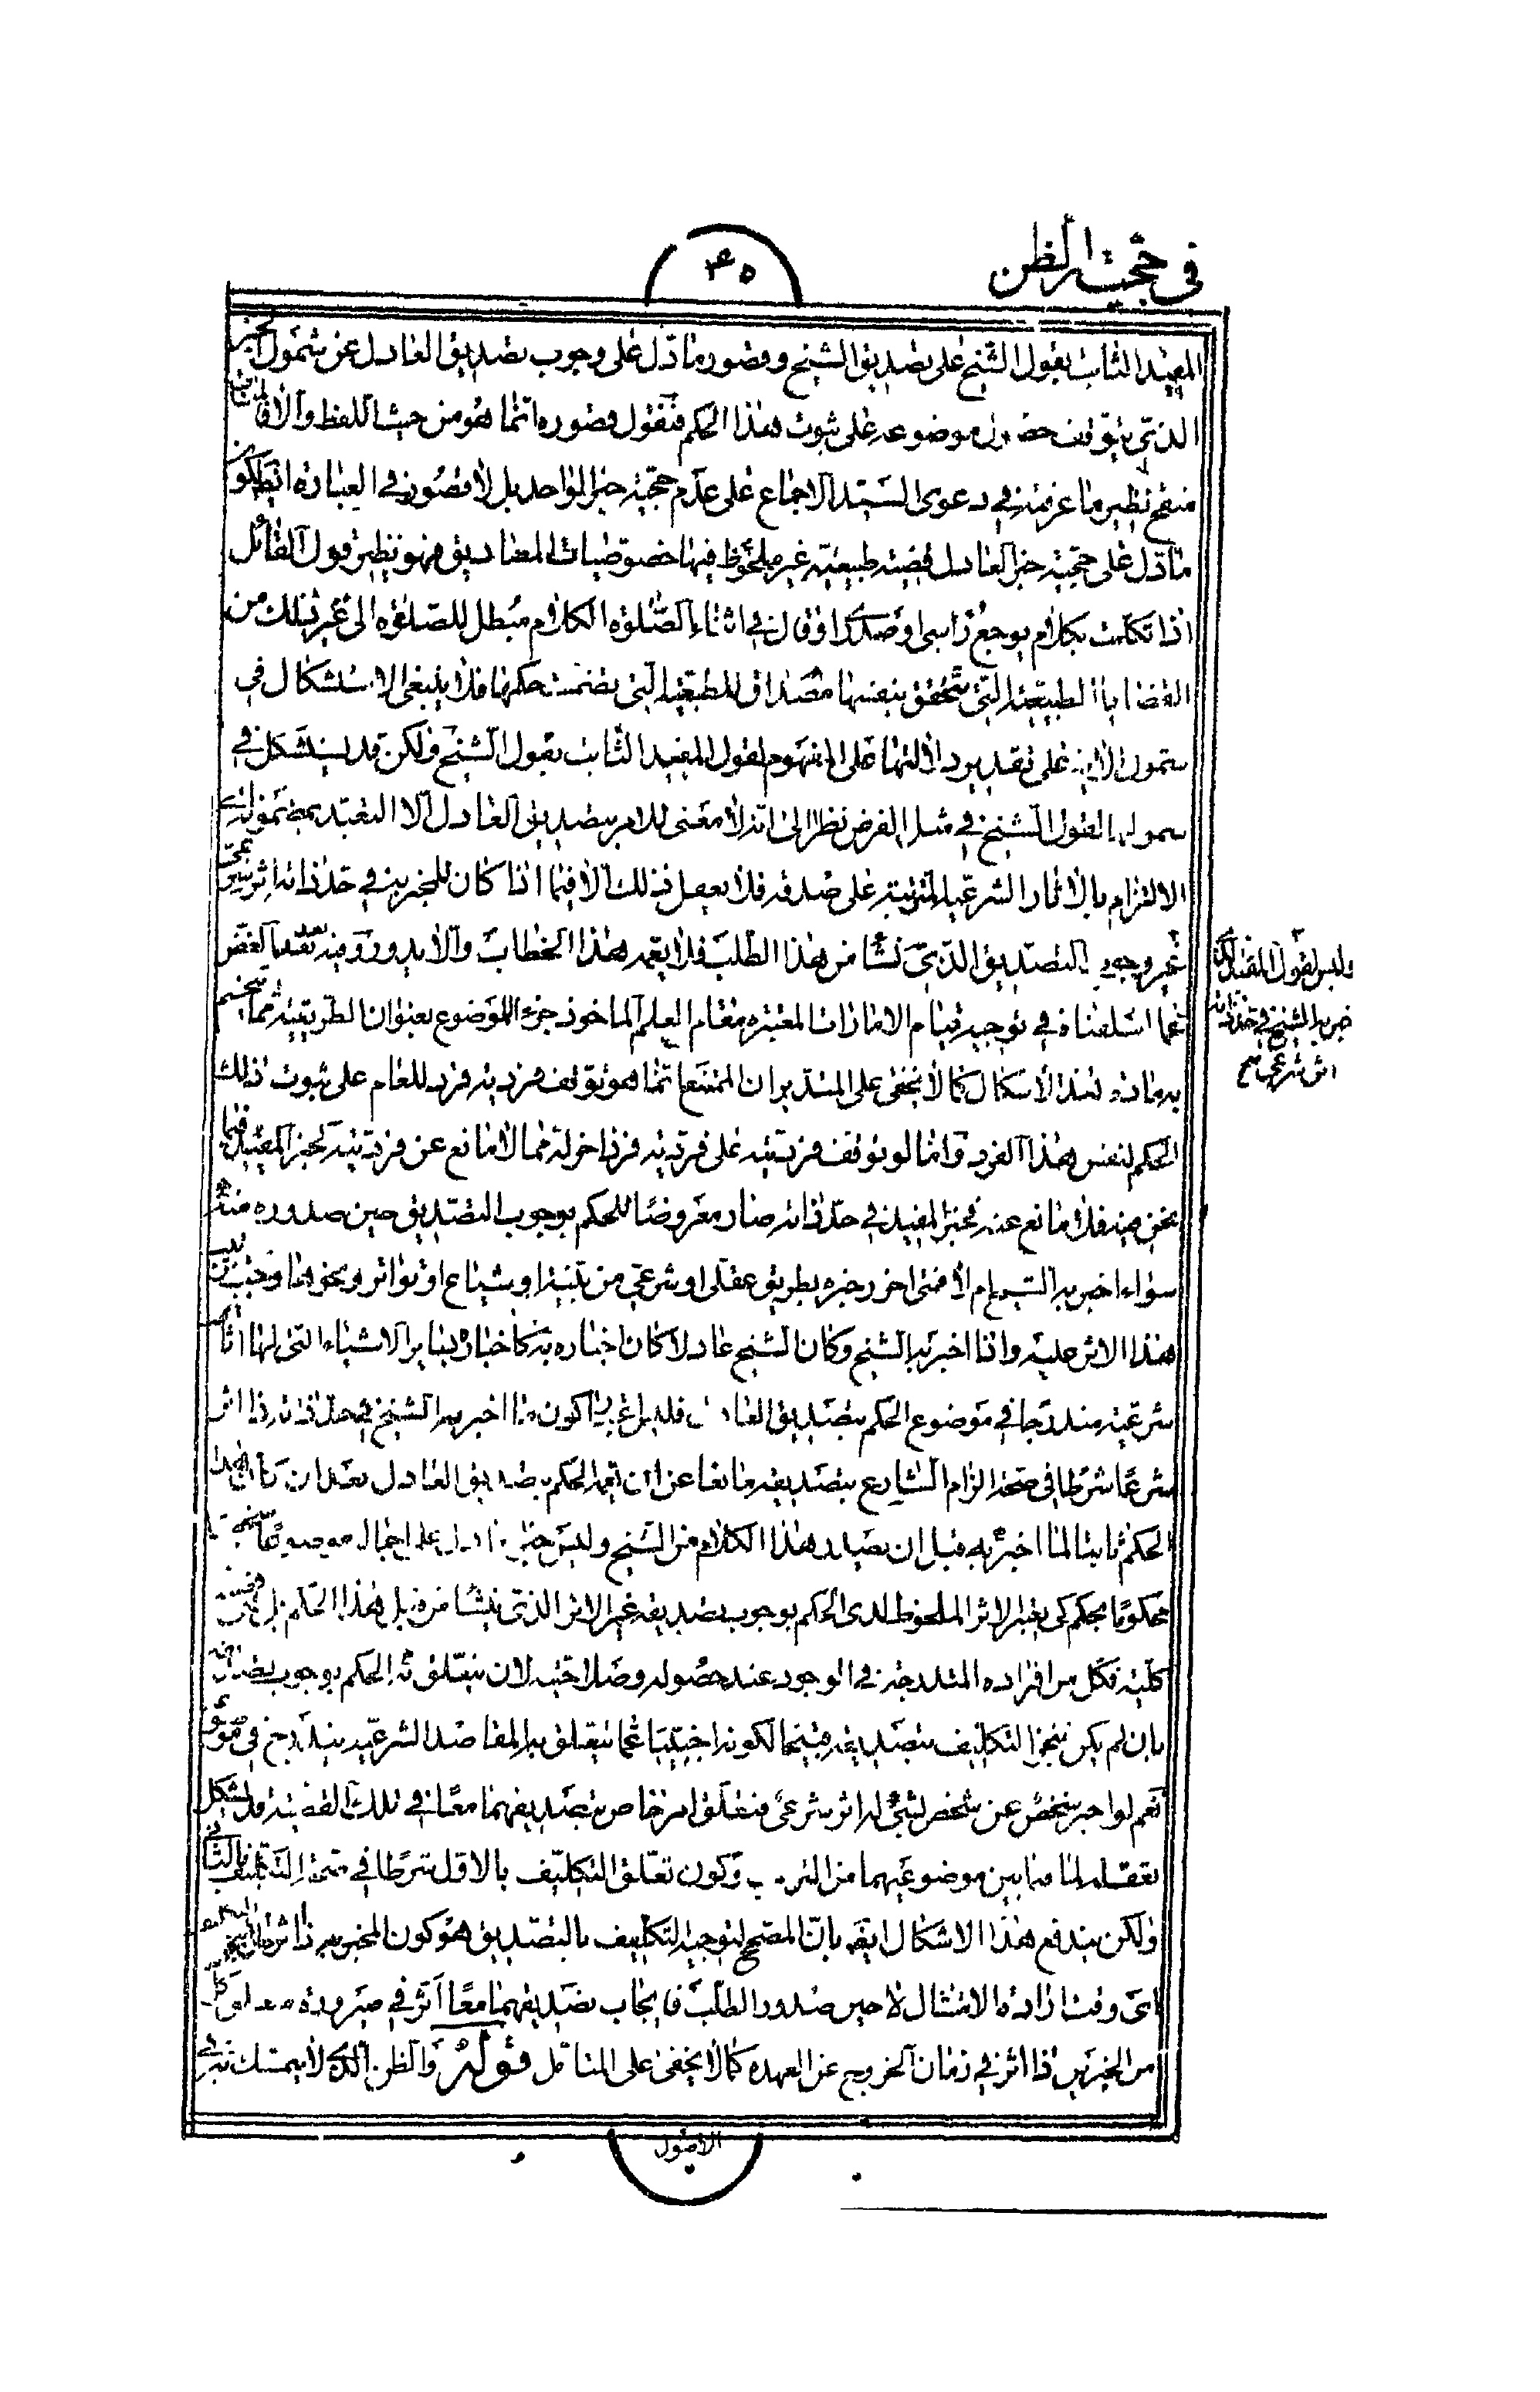 في حجية الظن
٤٥
المفيد الثابت بقول الشيخ على تصديق الشيخ وقصور ما دل على وجوب تصديق العادل عن شمول الخبر
الذي يتوقف حصول موضوعه على ثبوت هذا الحكم فنقول قصوره انما هو من حيث اللفظ والا فالمناط
منقح نظير ما عرفته في دعوى السيد الاجماع على عدم حجية خبر الواحد بل لا قصور في العبارة ايضا لكون
ما دل على حجية خبر العادل قضية طبيعية غير ملحوظ فيها خصوصيات المصاديق فهو نظير قول القائل
اذا تكلمت بكلام يوجع راسي او صدري او قال في اثناء الصلوة الكلام مبطل للصلوة الى غير ذلك من
القضايا الطبيعية التي تتحقق بنفسها مصداق للطبيعة التي تضمنت حكمها فلا ينبغي الاستشكال في
شمول الاية على تقدير دلالتها على المفهوم لقول المفيد الثابت بقول الشيخ ولكن قد يستشكل في
شمولها لقول الشيخ في مثل الفرض نظرا الى انه لا معنى للامر بتصديق العادل الا التعبد بمضمونه
الالتزام بالاثار الشرعية المترتبة على صدقه فلا يعقل ذلك الا فيما اذا كان للمخبر به في حد ذاته اثر شرعي
غير وجوب التصديق الذي نشا من هذا الطلب فلا يعمه هذا الخطاب والا يدور وفيه بعد الغض
عما اسلفناه في توجيه قيام الامارات المعتبرة مقام العلم الماخوذ جزء للموضوع بعنوان الطريقية مما ينحسم
به مادة هذا الاشكال كما لا يخفى على المتدبر ان الممتنع انما هو توقف فردية فرد للعام على ثبوت ذلك
الحكم لنفس هذا الفرد واما لو توقف فرديته على فردية فرد اخر له فمما لا مانع عن فرديته لخبر المفيد فيما
نحن فيه فلا مانع عنه فخبر المفيد في حد ذاته صار معروضا للحكم بوجوب التصديق حين صدوره منه
سواء اخبر به الشيخ ام لا فمتى احرز خبره بطريق عقلي او شرعي من بينة او شياع او تواتر ونحوها وجب ترتيب
هذا الاثر عليه واذا اخبر به الشيخ وكان الشيخ عادلا كان اخباره به كاخباره بساير الاشياء التي لها اثار
شرعية مندرجا في موضوع الحكم بتصديق العادل فليس اعتبار كون ما اخبر به الشيخ في حد ذاته ذا اثر
شرعا شرطا في صحة الزام الشارع بتصديقه مانعا عن ان يعمه الحكم بتصديق العادل بعد ان راى هذا
الحكم ثابتا لما اخبر به قبل ان يصدر هذا الكلام من الشيخ وليس خبر العادل على اجماله موضوعا شخصيا
محكوما بحكم كي يعتبر الاثر الملحوظ لدى الحكم بوجوب تصديقه غير الاثر الذي ينشا من قبل هذا الحكم بل هي قضية
كلية فكل من افراده المتدرجة في الوجود عند حصوله وصلاحيته لان يتعلق به الحكم بوجوب تصديقه
بان لم يكن تنجز التكليف بتصديقه قبيحا لكونه اجنبيا عما يتعلق به المقاصد الشرعية يندرج في موضوعه
نعم لو اخبر شخص عن شخص لشيء له اثر شرعي فتعلق امر خاص بتصديقهما معا في تلك القضية قد يشكل
تعقله لما بين موضوعيهما من الترتب وكون تعلق التكليف بالاول شرطا في صحة التكليف بالثاني
ولكن يندفع هذا الاشكال ايضا بان المصحح لتوجيه التكليف بالتصديق هو كون المخبر به ذا اثر
اي وقت ارادة الامتثال لا حين صدور الطلب فايجاب تصديقهما معا اثر في صيرورة متعلق كل
من الخبرين ذا اثر في زمان الخروج عن العهدة كما لا يخفى على المتامل قوله والظن الذي لا يتمسك به في
الاصول
وليس لقول المفيد الذي
خبر به الشيخ في حد ذاته
اثر شرعي صح